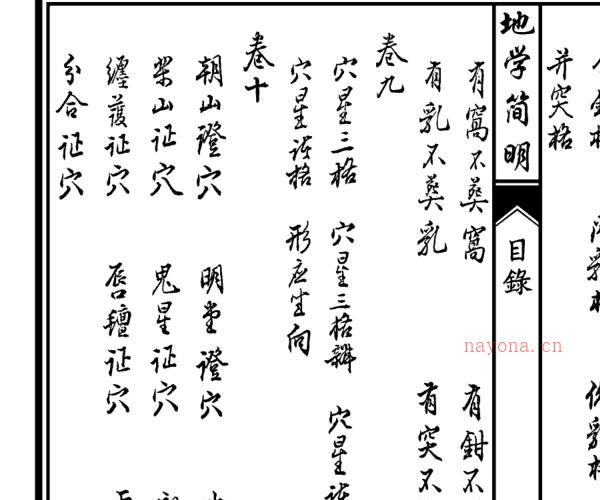 并突格
地学简明
目錄
有窩不葬窩 有鉗不
有乳不葬乳 有突不
卷九
穴星三格 穴星三格辨 穴星
穴星诸格 形应坐向
卷十
朝山證穴 明堂證穴
樂山证穴 鬼星证穴
纏護证穴 唇氈证穴
分合证穴
nayona.cn